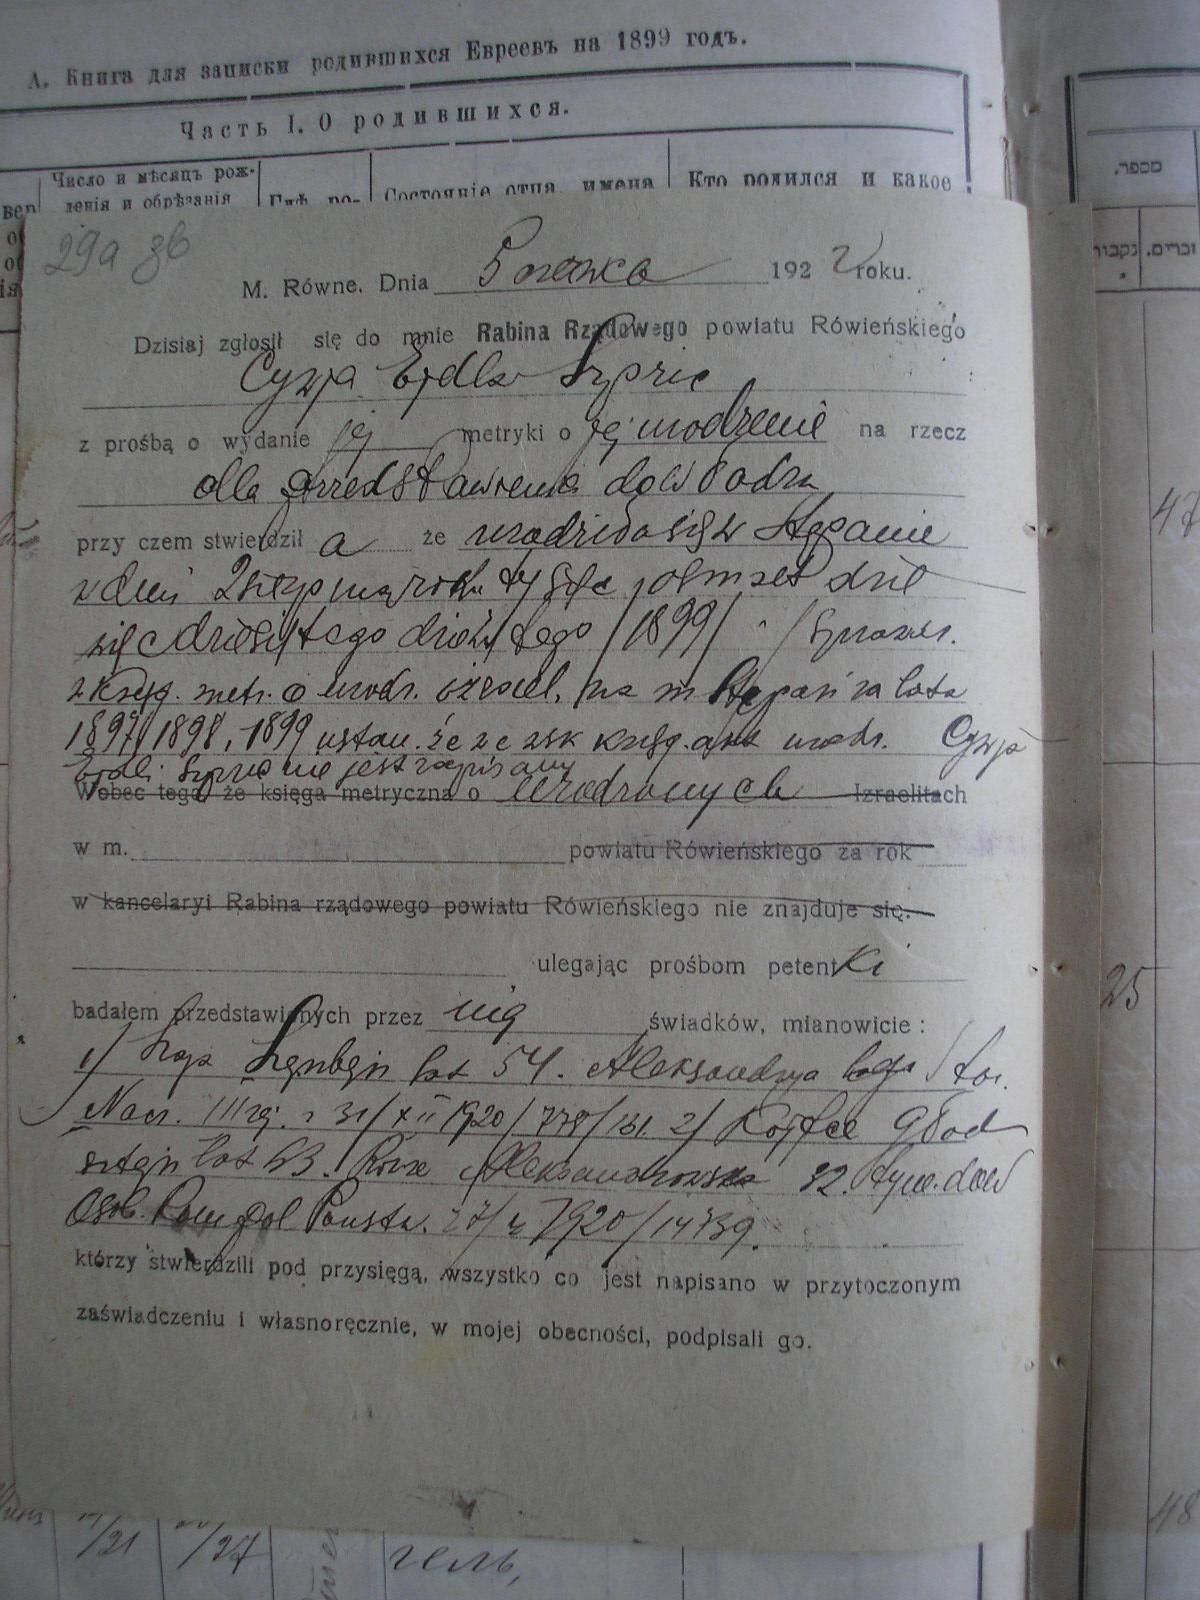 А. Книга для записки родившихся Евреевъ на 1899 годъ.
Часть I. О родившихся.
Число и мѣсяцъ рож-
денія и обрѣзанія
Гдѣ ро-
Состояніе отца, имена
Кто родился и какое
מספר.
זכרים.
נקבות
29a
M. Równe. Dnia 5 marca 1922 roku.
Dzisiaj zgłosił się do mnie Rabina Rządowego powiatu Rówieńskiego
Cywja Ejdla Szpric
z prośbą o wydanie jej metryki o jej urodzenie na rzecz
dla przedstawienia do władzu
przy czem stwierdził a że urodziła się w Stepanie
w dniu 2 sierpnia roku tysiąc ośmset dzie
więćdziesiątego dziewiątego /1899/
z księg. metr. o urodz. izrael. za m Stepań za lata
1897, 1898, 1899 ustan. że ze zsk księg. akt urodz. Cywja
Ejdli Szpric nie jest zapisany
Wobec tego że księga metryczna o urodzonych Izraelitach
w m. powiatu Rówieńskiego za rok
w kancelaryi Rabina rządowego powiatu Rówieńskiego nie znajduje się.
ulegając prośbom petentki
badałem przedstawionych przez nią świadków, mianowicie:
1/ lat 54. Aleksandrja
Nacz. III rej. 31/XII 1920/778/131. 2/ Kojfce Głod
sztejn lat 53. Równe Aleksandrowska 92. tymc. dow
Osob. Kom Pol Państw. 1920/14739.
którzy stwierdzili pod przysięgą, wszystko co jest napisano w przytoczonym
zaświadczeniu i własnoręcznie, w mojej obecności, podpisali go.
47
25
48
/21
/27
гель,